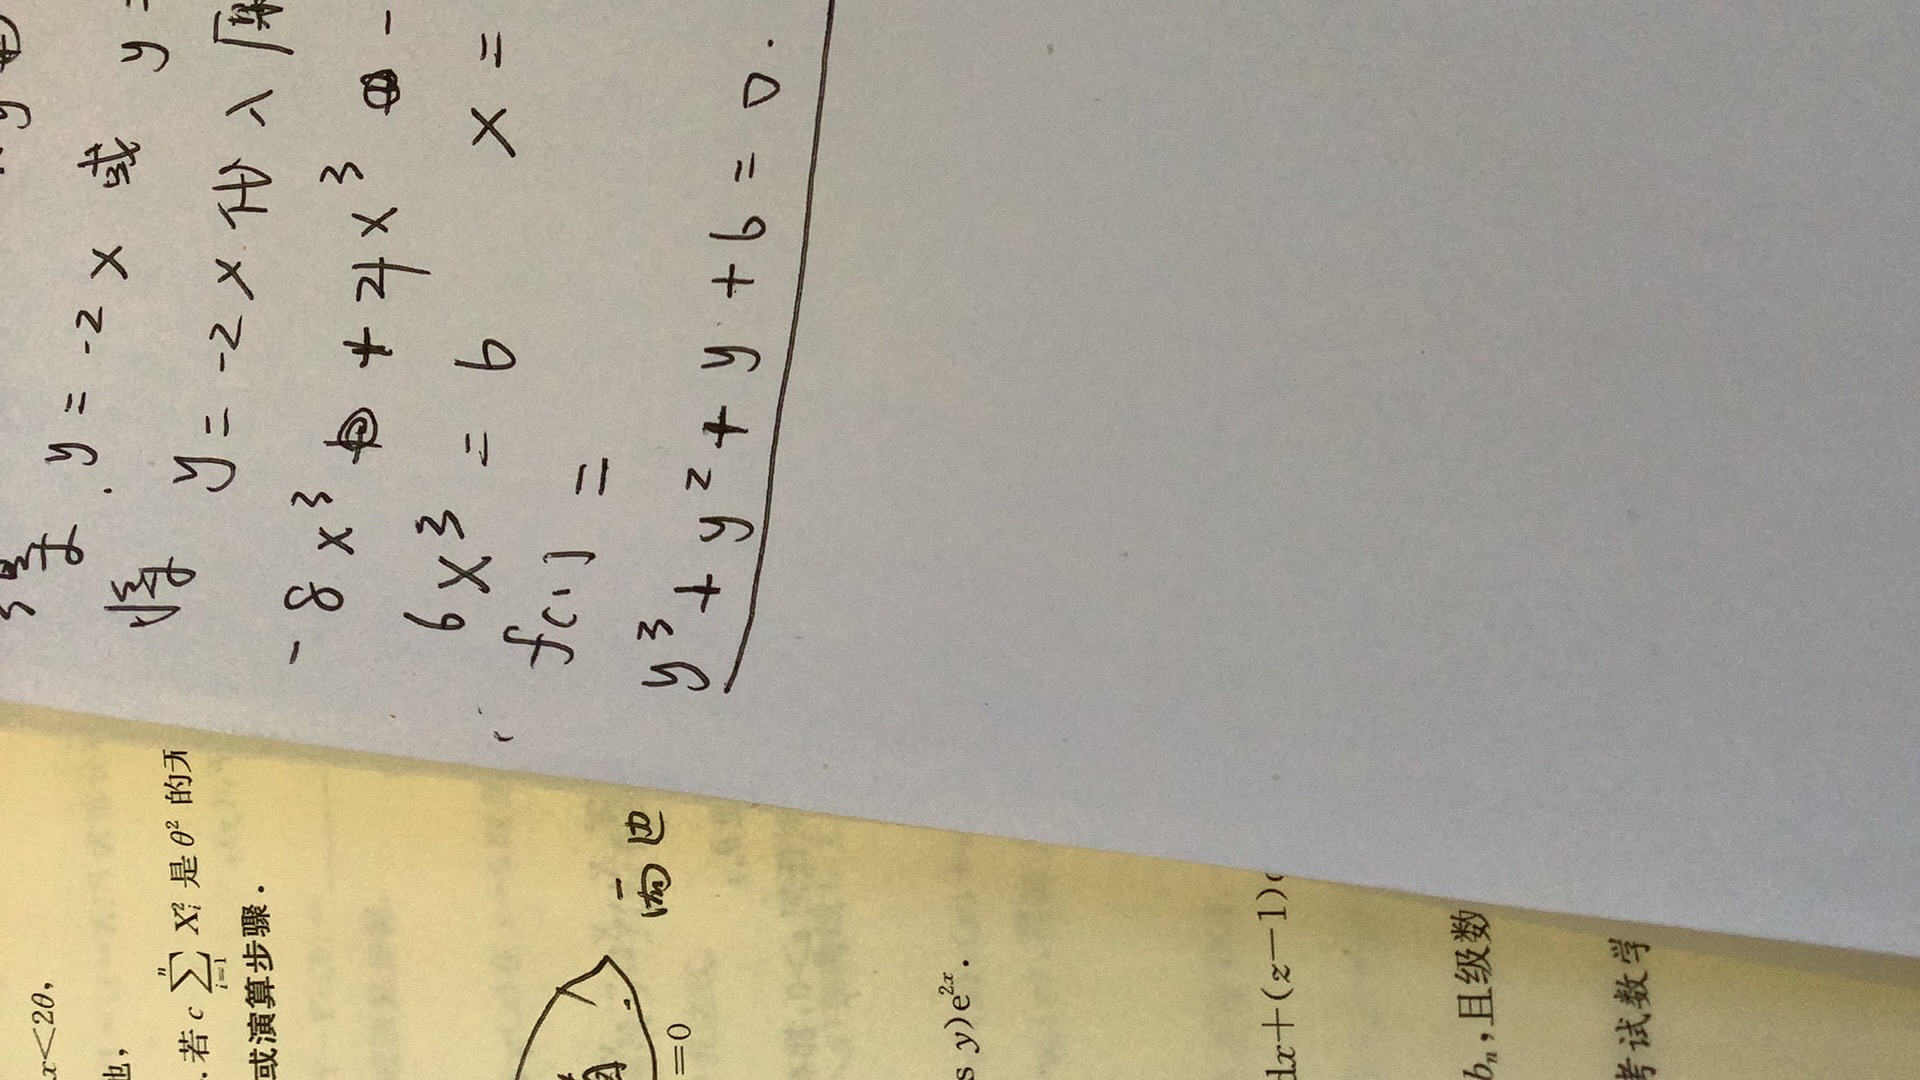 得 . y = -2x 或 y =
将 y = -2x 代入 原
-8x³ + 4x³ -
6x³ = 6 x =
f(1) =
y³ + y² + y + 6 = 0.
x<2θ,
. 若 c ∑ᵢ₌₁ⁿ Xᵢ² 是 θ² 的无
或演算步骤.
两边
=0
s y)e²ˣ.
dx+(z−1)
bₙ, 且级数
考试数学